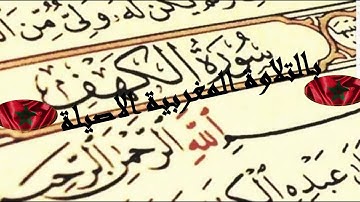 لَّهُ وَلِيٌّ مِّنَ
سورة الكهف
بالتلاوة المغربية الأصيلة
بِسْمِ اللَّهِ الرَّحْمَٰنِ الرَّحِيمِ
عَبْدِهِ